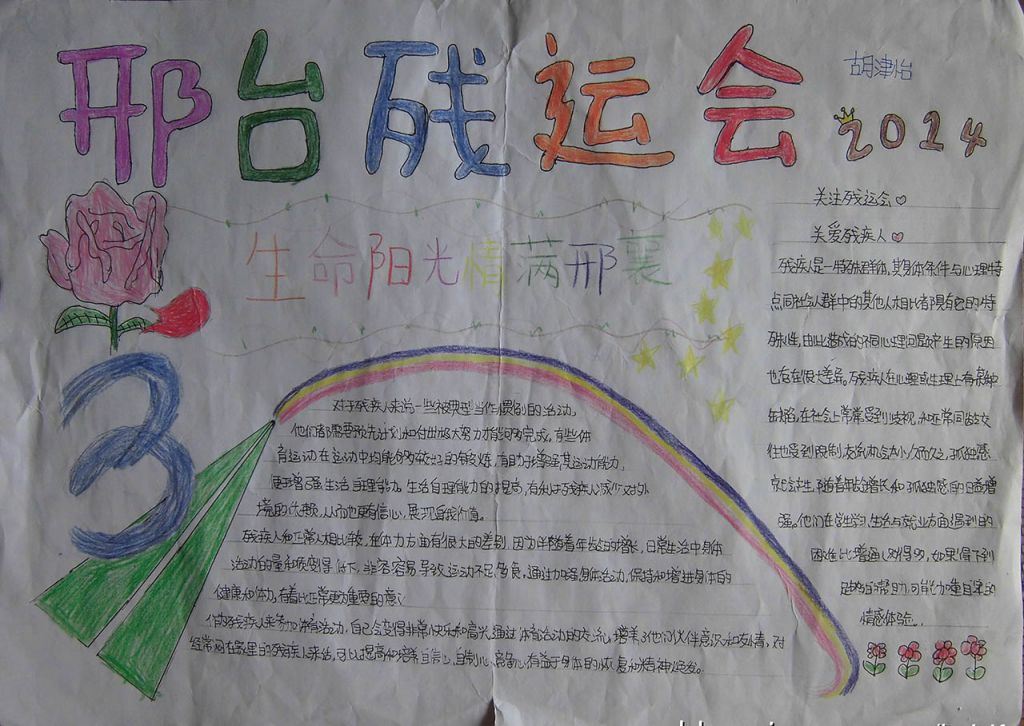 邢台残运会
胡津怡
2014
生命阳光情满邢襄
3
对于残疾人来说一些被典型当作惯例的活动,
他们都需要预先计划和付出极大努力才能够完成,有些体
育运动在运动中均能够较好的锻炼,有助于增强其运动能力,
便于增强生活自理能力。生活自理能力的提高,有利于残疾人减少对外
境的依赖,从而也更有信心,展现自我价值。
残疾人和正常人相比较,在体力方面有很大的差别,因为伴随着年龄的增长,日常生活中身体
活动的量和质变得低下,非常容易导致运动不足。当然,通过加强身体活动,保持和增进身体的
健康和体力,有着比正常更为重要的意义
作为残疾人来参加体育活动,自己会变得非常快乐和高兴,通过体育活动的交流,培养了他们伙伴意识和友情,对
经常闷在家里的残疾人来说,可以提高和培养自信心,自制心,
关注残运会
关爱残疾人
残疾人是一群特殊群体,其身体条件与心理特
点同社会人群中的其他人相比都具有它的特
殊性,由此造成的不同心理问题产生的原因
也存在很大差异。残疾人在心理或生理上有某种
缺陷,在社会上常常受到歧视,和正常同龄交
往也受到限制,交流机会太少久而久之,孤独感
就会产生,随着年龄增长和孤独感的日益增
强。他们在学生学习,生活与就业方面遇到的
困难比普通人则得多,如果得不到
足够的帮助,可能加重自卑的
情感体验。